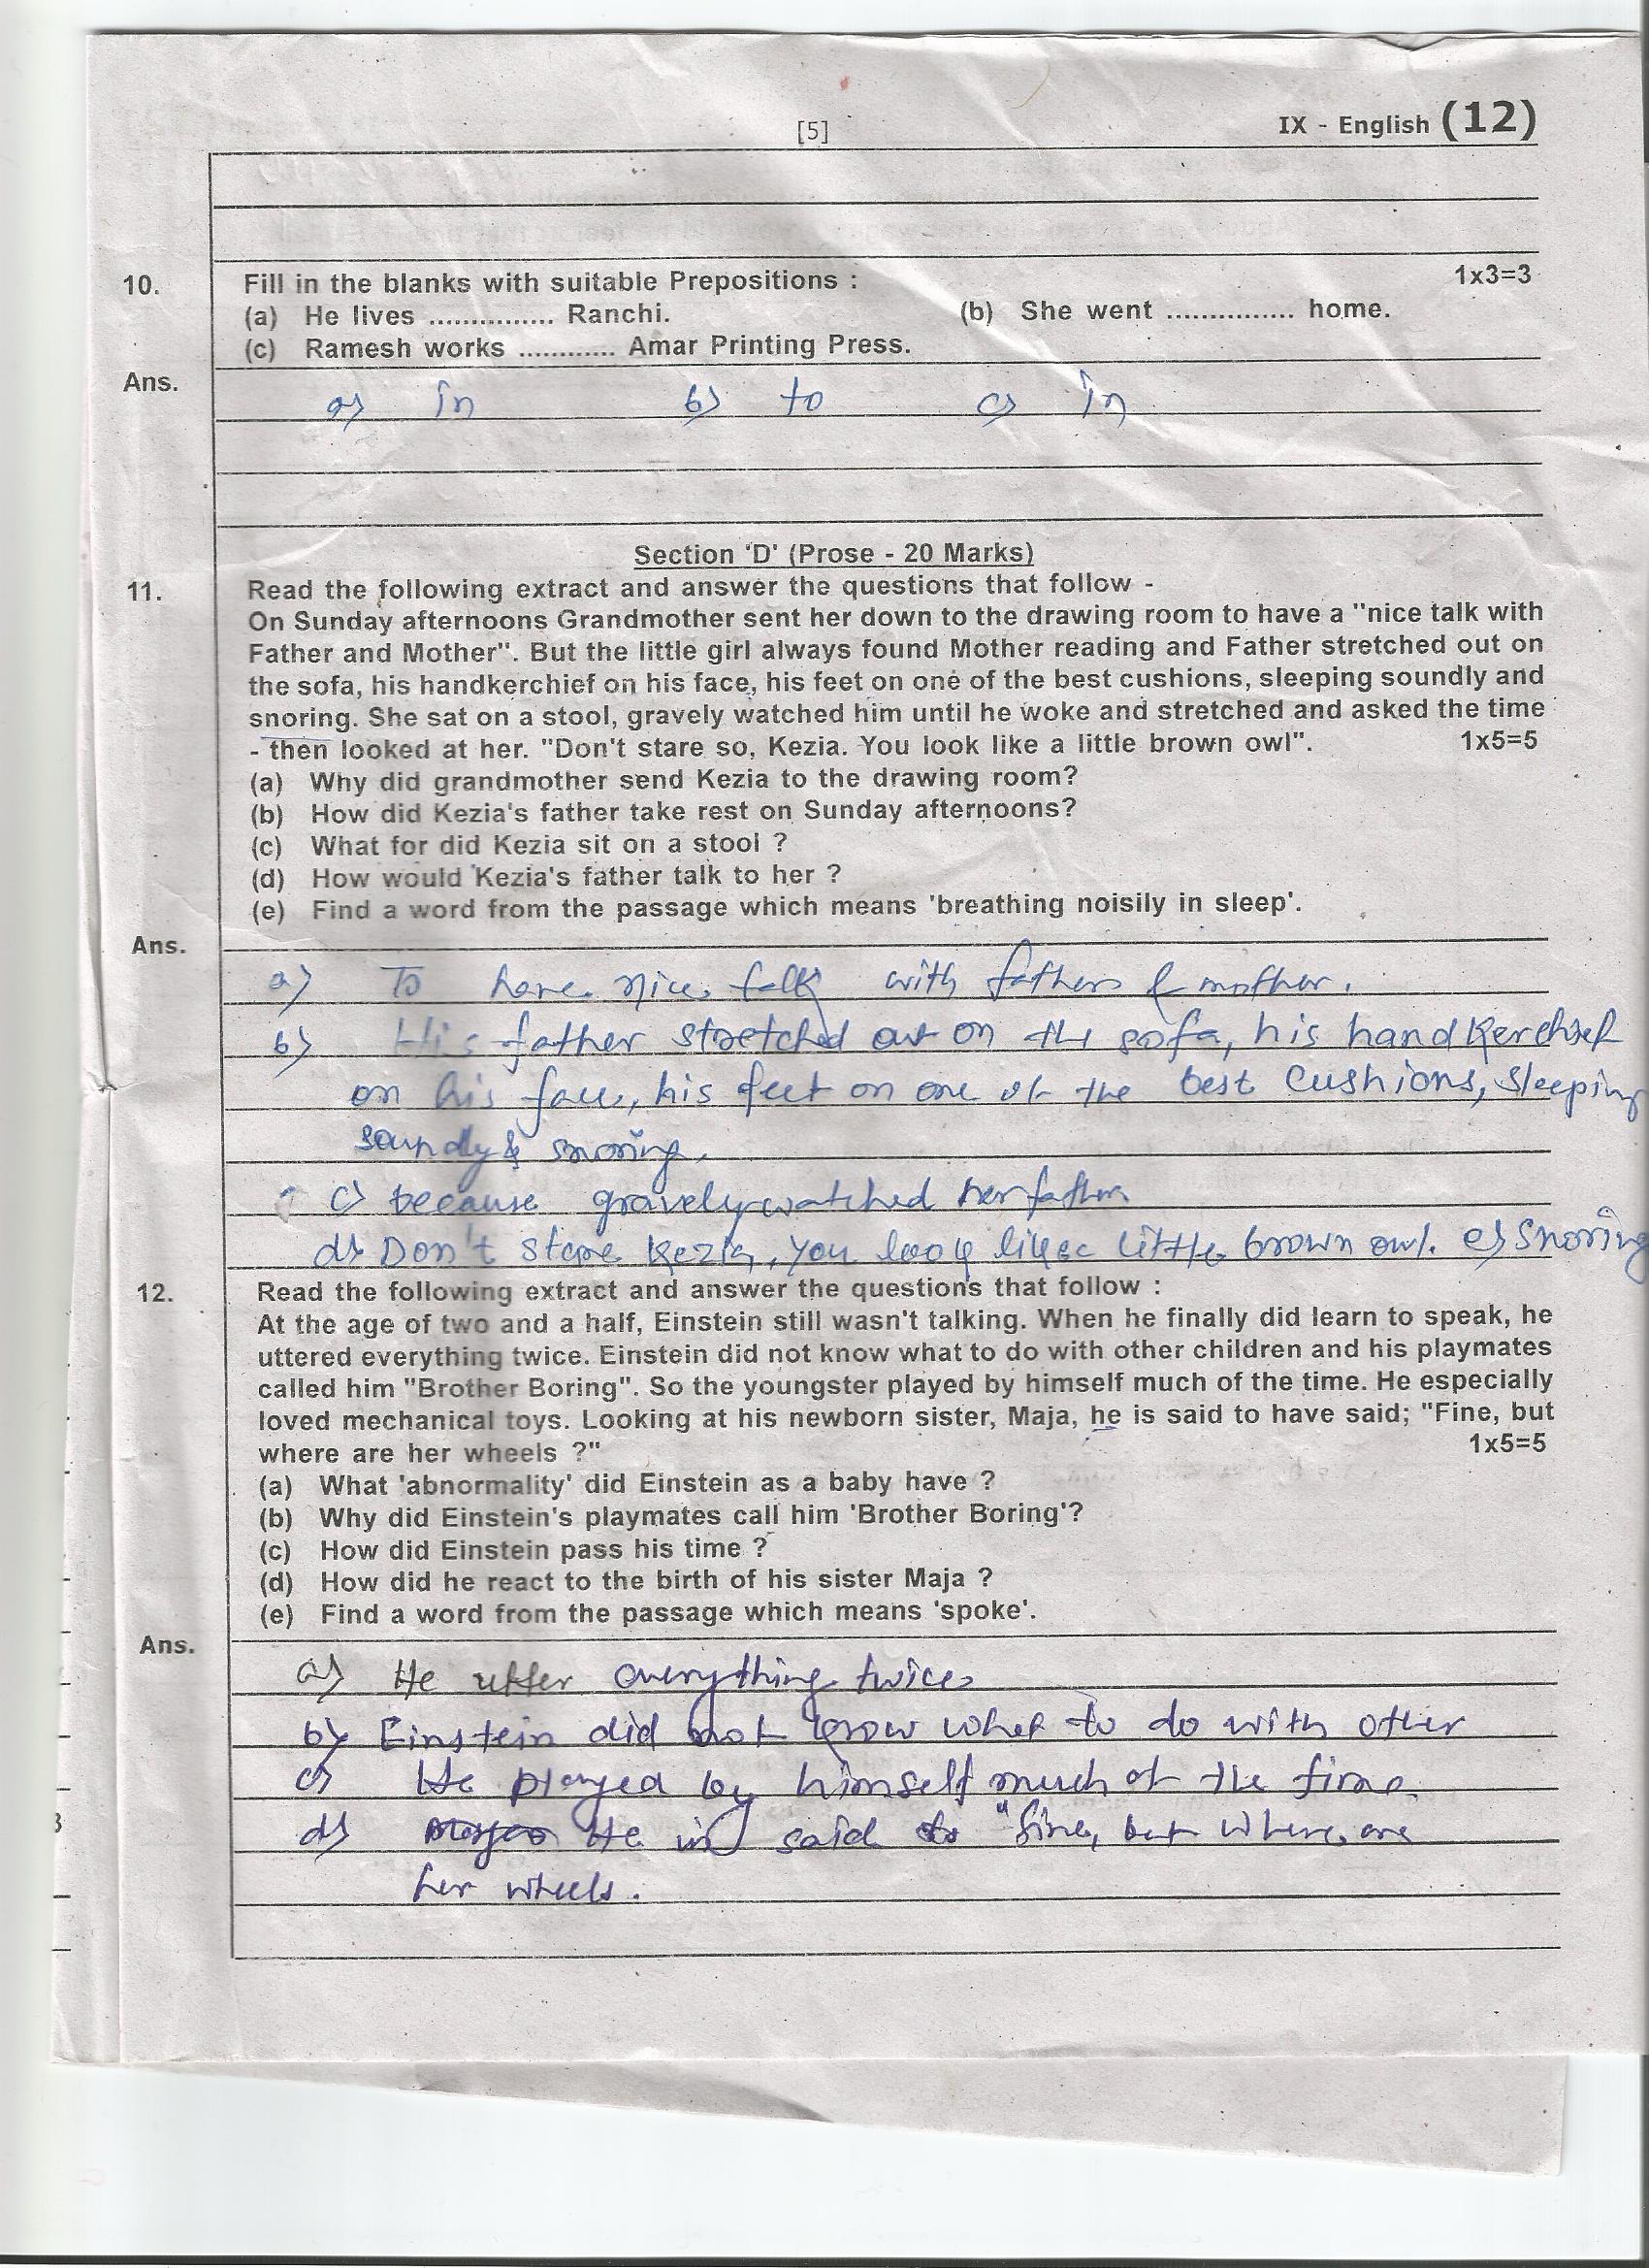 [5]
IX - English (12)
10. Fill in the blanks with suitable Prepositions : 1x3=3
(a) He lives ............... Ranchi. (b) She went ............... home.
(c) Ramesh works ............ Amar Printing Press.
Ans.
a) in b) to c) in
Section 'D' (Prose - 20 Marks)
11. Read the following extract and answer the questions that follow -
On Sunday afternoons Grandmother sent her down to the drawing room to have a "nice talk with
Father and Mother". But the little girl always found Mother reading and Father stretched out on
the sofa, his handkerchief on his face, his feet on one of the best cushions, sleeping soundly and
snoring. She sat on a stool, gravely watched him until he woke and stretched and asked the time
- then looked at her. "Don't stare so, Kezia. You look like a little brown owl". 1x5=5
(a) Why did grandmother send Kezia to the drawing room?
(b) How did Kezia's father take rest on Sunday afternoons?
(c) What for did Kezia sit on a stool ?
(d) How would Kezia's father talk to her ?
(e) Find a word from the passage which means 'breathing noisily in sleep'.
Ans.
a) To have nice talk with father & mother.
b) His father stretched out on the sofa, his handkerchief
on his face, his feet on one of the best cushions, sleeping
soundly & snoring.
c) because gravely watched her father
d) Don't stare Kezia, you look like little brown owl. e) Snoring
12. Read the following extract and answer the questions that follow :
At the age of two and a half, Einstein still wasn't talking. When he finally did learn to speak, he
uttered everything twice. Einstein did not know what to do with other children and his playmates
called him "Brother Boring". So the youngster played by himself much of the time. He especially
loved mechanical toys. Looking at his newborn sister, Maja, he is said to have said; "Fine, but
where are her wheels ?" 1x5=5
(a) What 'abnormality' did Einstein as a baby have ?
(b) Why did Einstein's playmates call him 'Brother Boring'?
(c) How did Einstein pass his time ?
(d) How did he react to the birth of his sister Maja ?
(e) Find a word from the passage which means 'spoke'.
Ans.
a) He utter everything twice
b) Einstein did not know what to do with other
c) He played by himself much of the time.
d) He is said to "fine, but where are
her wheels.